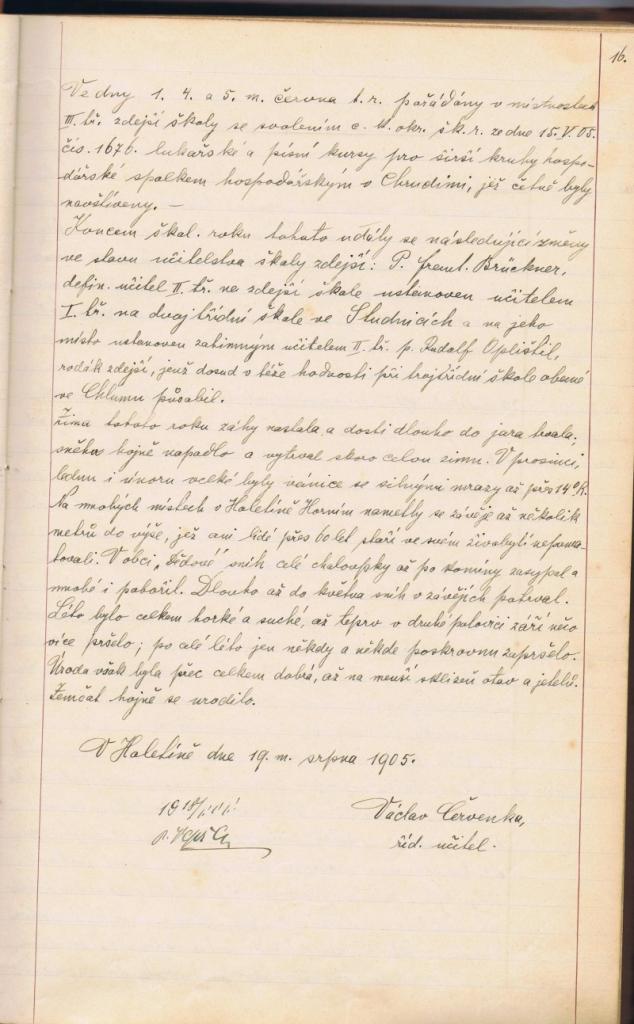 16.
Ve dny 1. 4. a 5. m. června t. r. pořádány v místnostech
III. tř. zdejší školy se svolením c. k. okr. šk. r. ze dne 15. V. 05.
čís. 1676. lukařské a pícní kursy pro širší kruhy hospo-
dářské spolkem hospodářským v Chrudimi, jež četně byly
navštíveny. –
Koncem škol. roku tohoto udály se následující změny
ve stavu učitelstva školy zdejší: P. Frant. Brückner,
defin. učitel II. tř. na zdejší škole ustanoven učitelem
I. tř. na dvojtřídní škole ve Studnicích a na jeho
místo ustanoven zatimným učitelem II. tř. p. Rudolf Oplištil,
rodák zdejší, jenž dosud v téže hodnosti při trojtřídní škole obecné
ve Chlumu působil.
Zima tohoto roku záhy nastala a dosti dlouho do jara trvala;
sněhu hojně napadlo a vytrval skoro celou zimu. V prosinci,
lednu i únoru velké byly vánice se silnými mrazy až přes 14° R.
Na mnohých místech v Holetíně Horním nametly se závěje až několik
metrů do výše, jež ani lidé přes 60 let staří ve svém živobytí nepama-
tovali. V obci, „Dědově“ sníh celé chaloupky až po komíny zasypal a
mnohé i pobořil. Dlouho až do května sníh v závějích potrval.
Léto bylo celkem horké a suché, až teprv v druhé polovici září něco
více pršelo; po celé léto jen někdy a někde poskrovnu zapršelo.
Úroda však byla přec celkem dobrá, až na menší sklizeň otav a jetelů.
Zemčat hojně se urodilo.
V Holetíně dne 19. m. srpna 1905.
Václav Červenka,
říd. učitel.